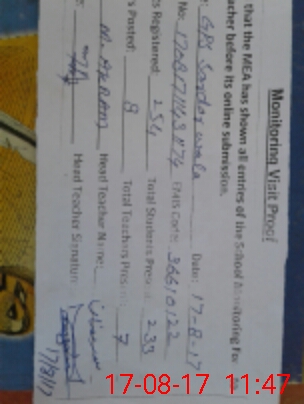 Monitoring Visit Proof
that the MEA has shown all entries of the School Monitoring Fo
acher before its online submission.
GPS Sardar wala Date: 17-8-17
No: EMIS Code: 36610122
s Registered: 254 Total Students Present: 233
s Posted: 8 Total Teachers Present: 7
M. AKRAM Head Teacher Name:
Head Teacher Signature
17/8/17
17-08-17 11:47